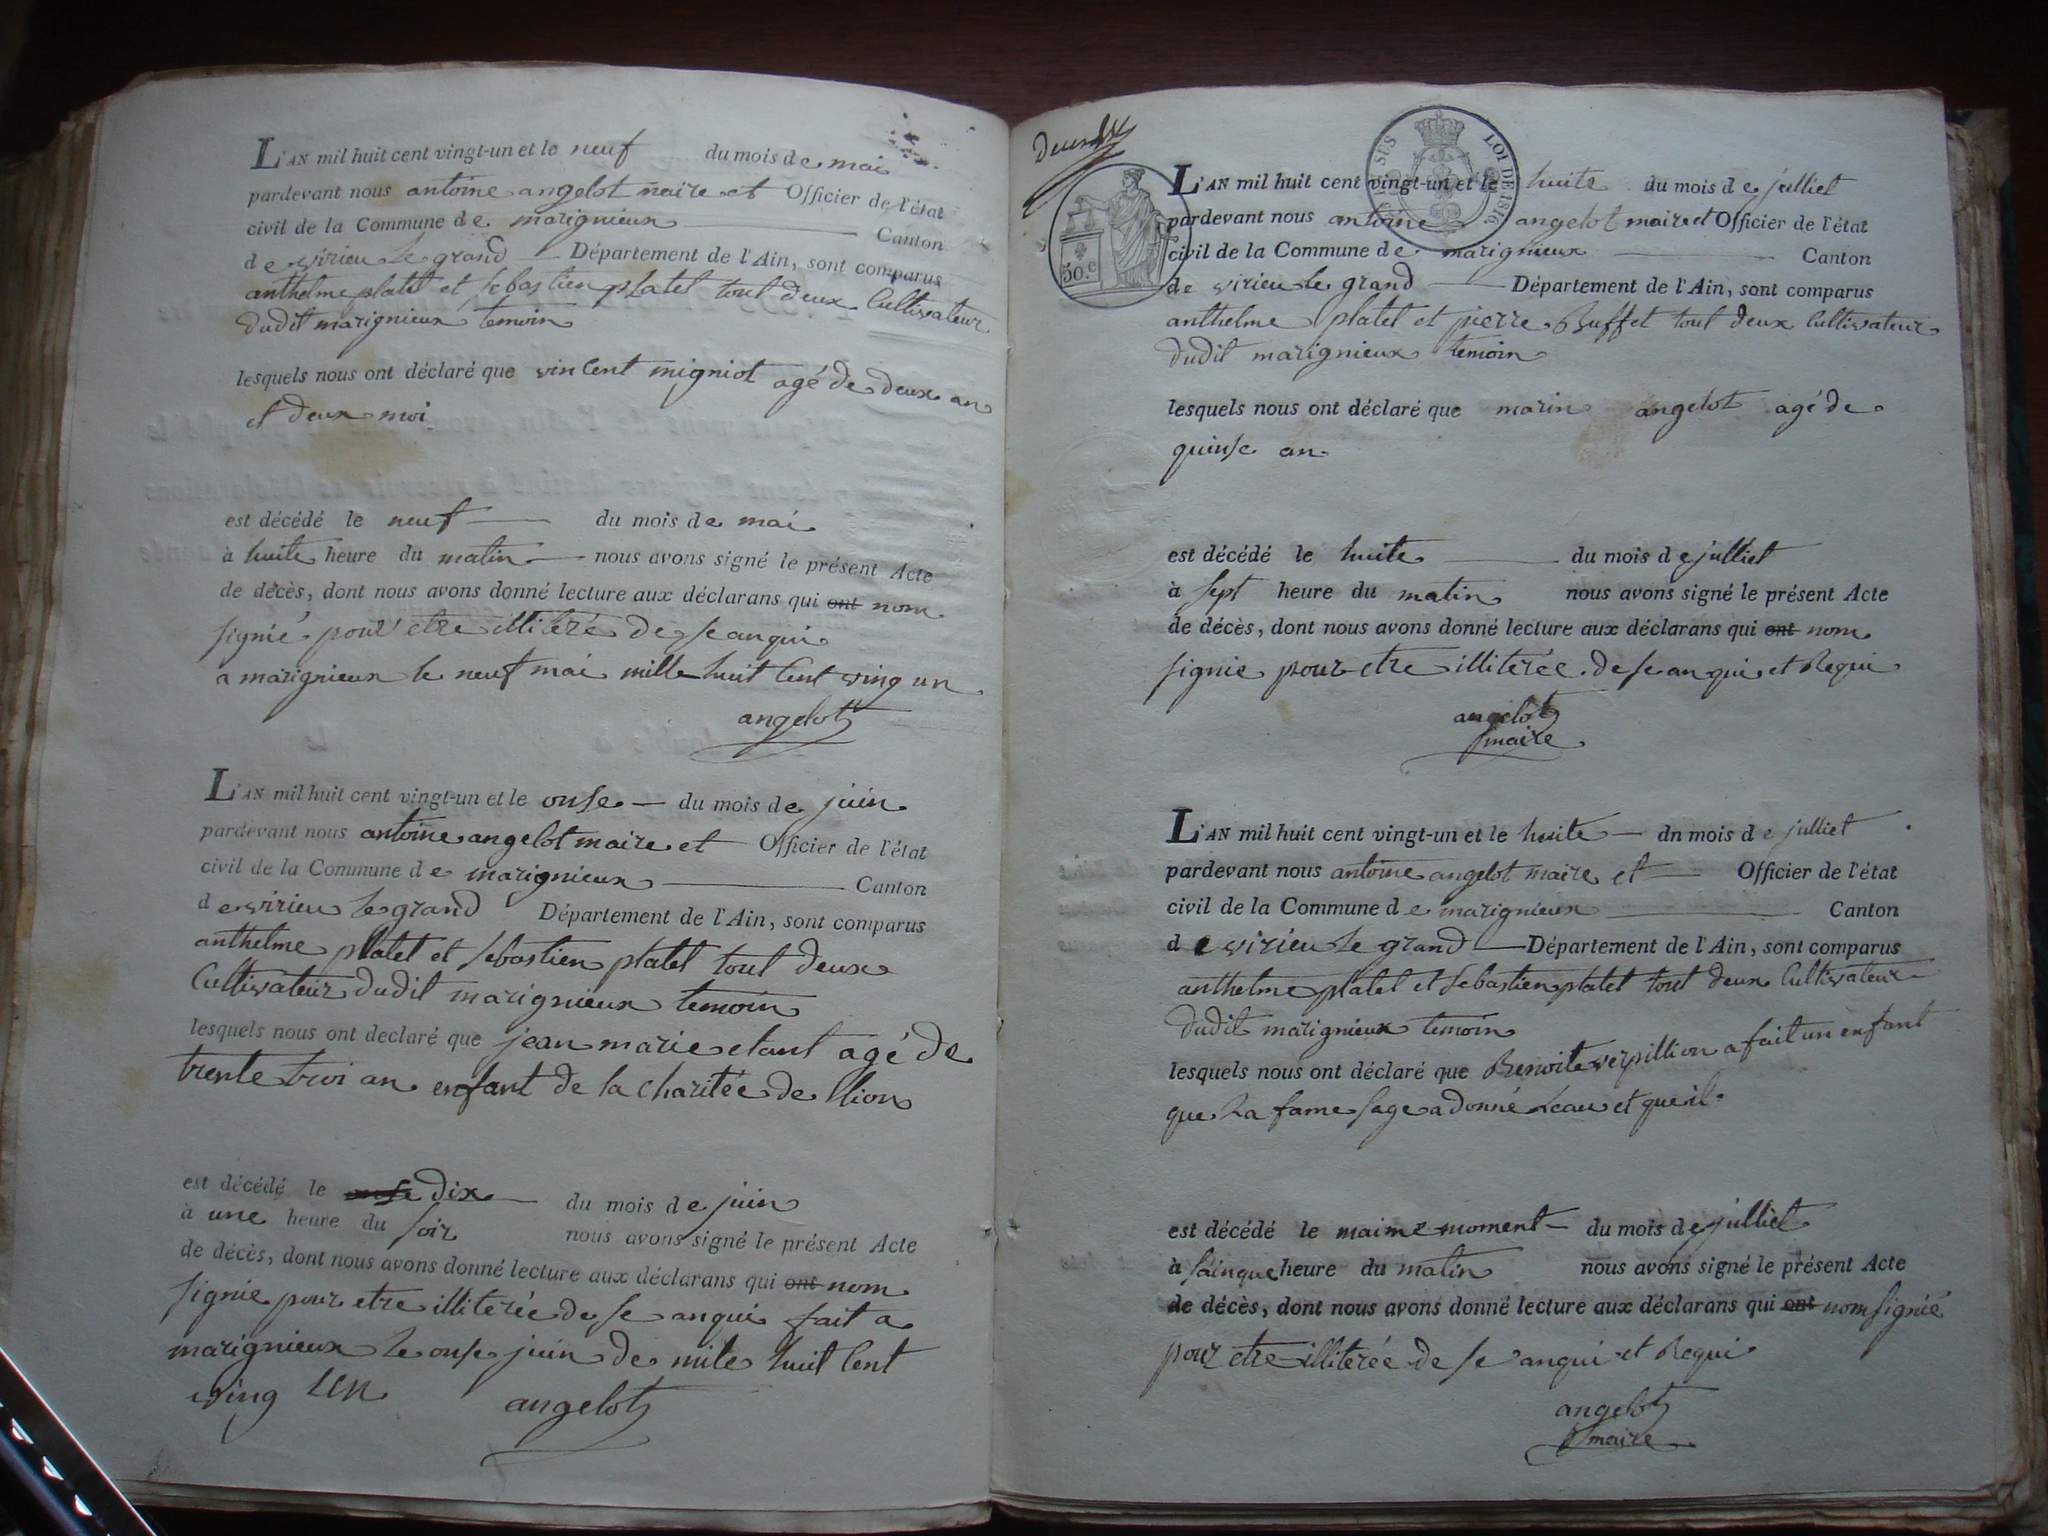 L'AN mil huit cent vingt-un et le neuf du mois de mai
pardevant nous antoine angelot maire et Officier de l'état
civil de la Commune de marignieux Canton
de virieu le grand Département de l'Ain, sont comparus
anthelme platet et sebastien platet tout deux Cultivateur
dudit marignieux temoin
lesquels nous ont déclaré que vincent migniot agé de deux an
et deux moi
est décédé le neuf du mois de mai
à huite heure du matin nous avons signé le présent Acte
de décès, dont nous avons donné lecture aux déclarans qui ont nom
signié pour etre illiteré de se anqui
a marignieux le neuf mai mille huit Cent ving un
angelot
L'AN mil huit cent vingt-un et le onse du mois de juin
pardevant nous antoine angelot maire et Officier de l'état
civil de la Commune de marignieux Canton
de virieu le grand Département de l'Ain, sont comparus
anthelme platet et sebastien platet tout deux
Cultivateur dudit marignieux temoin
lesquels nous ont declaré que jean marie etant agé de
trente troi an enfant de la Charitée de llion
est décédé le onse dix du mois de juin
à une heure du soir nous avons signé le présent Acte
de décès, dont nous avons donné lecture aux déclarans qui ont nom
signie pour etre illiterée de se anqui fait a
marignieux le onse juin de mile huit Cent
ving un angelot
SUS LOI DE 1816.
50.c
L'AN mil huit cent vingt-un et le huite du mois de julliet
pardevant nous antoine angelot maire et Officier de l'état
civil de la Commune de marignieux Canton
de virieu le grand Département de l'Ain, sont comparus
anthelme platet et pierre Buffet tout deux Cultivateur
dudit marignieux temoin
lesquels nous ont déclaré que marin angelot agé de
quinse an
est décédé le huite du mois de julliet
à sept heure du matin nous avons signé le présent Acte
de décès, dont nous avons donné lecture aux déclarans qui ont nom
signie pour etre illiterée de se anqui et Requi
angelot
maire
L'AN mil huit cent vingt-un et le huite dn mois de julliet
pardevant nous antoine angelot maire et Officier de l'état
civil de la Commune de marignieux Canton
de virieu le grand Département de l'Ain, sont comparus
anthelme platet et sebastien platet tout deux Cultivateur
dudit marignieux temoin
lesquels nous ont déclaré que Benoite verpillion a fait un enfant
que La fame sage a donné Leau et que il
est décédé le maime moment du mois de julliet
à sainque heure du matin nous avons signé le présent Acte
de décès, dont nous avons donné lecture aux déclarans qui ont nom signié
pour etre illiterée de se anqui et Requi
angelot
maire